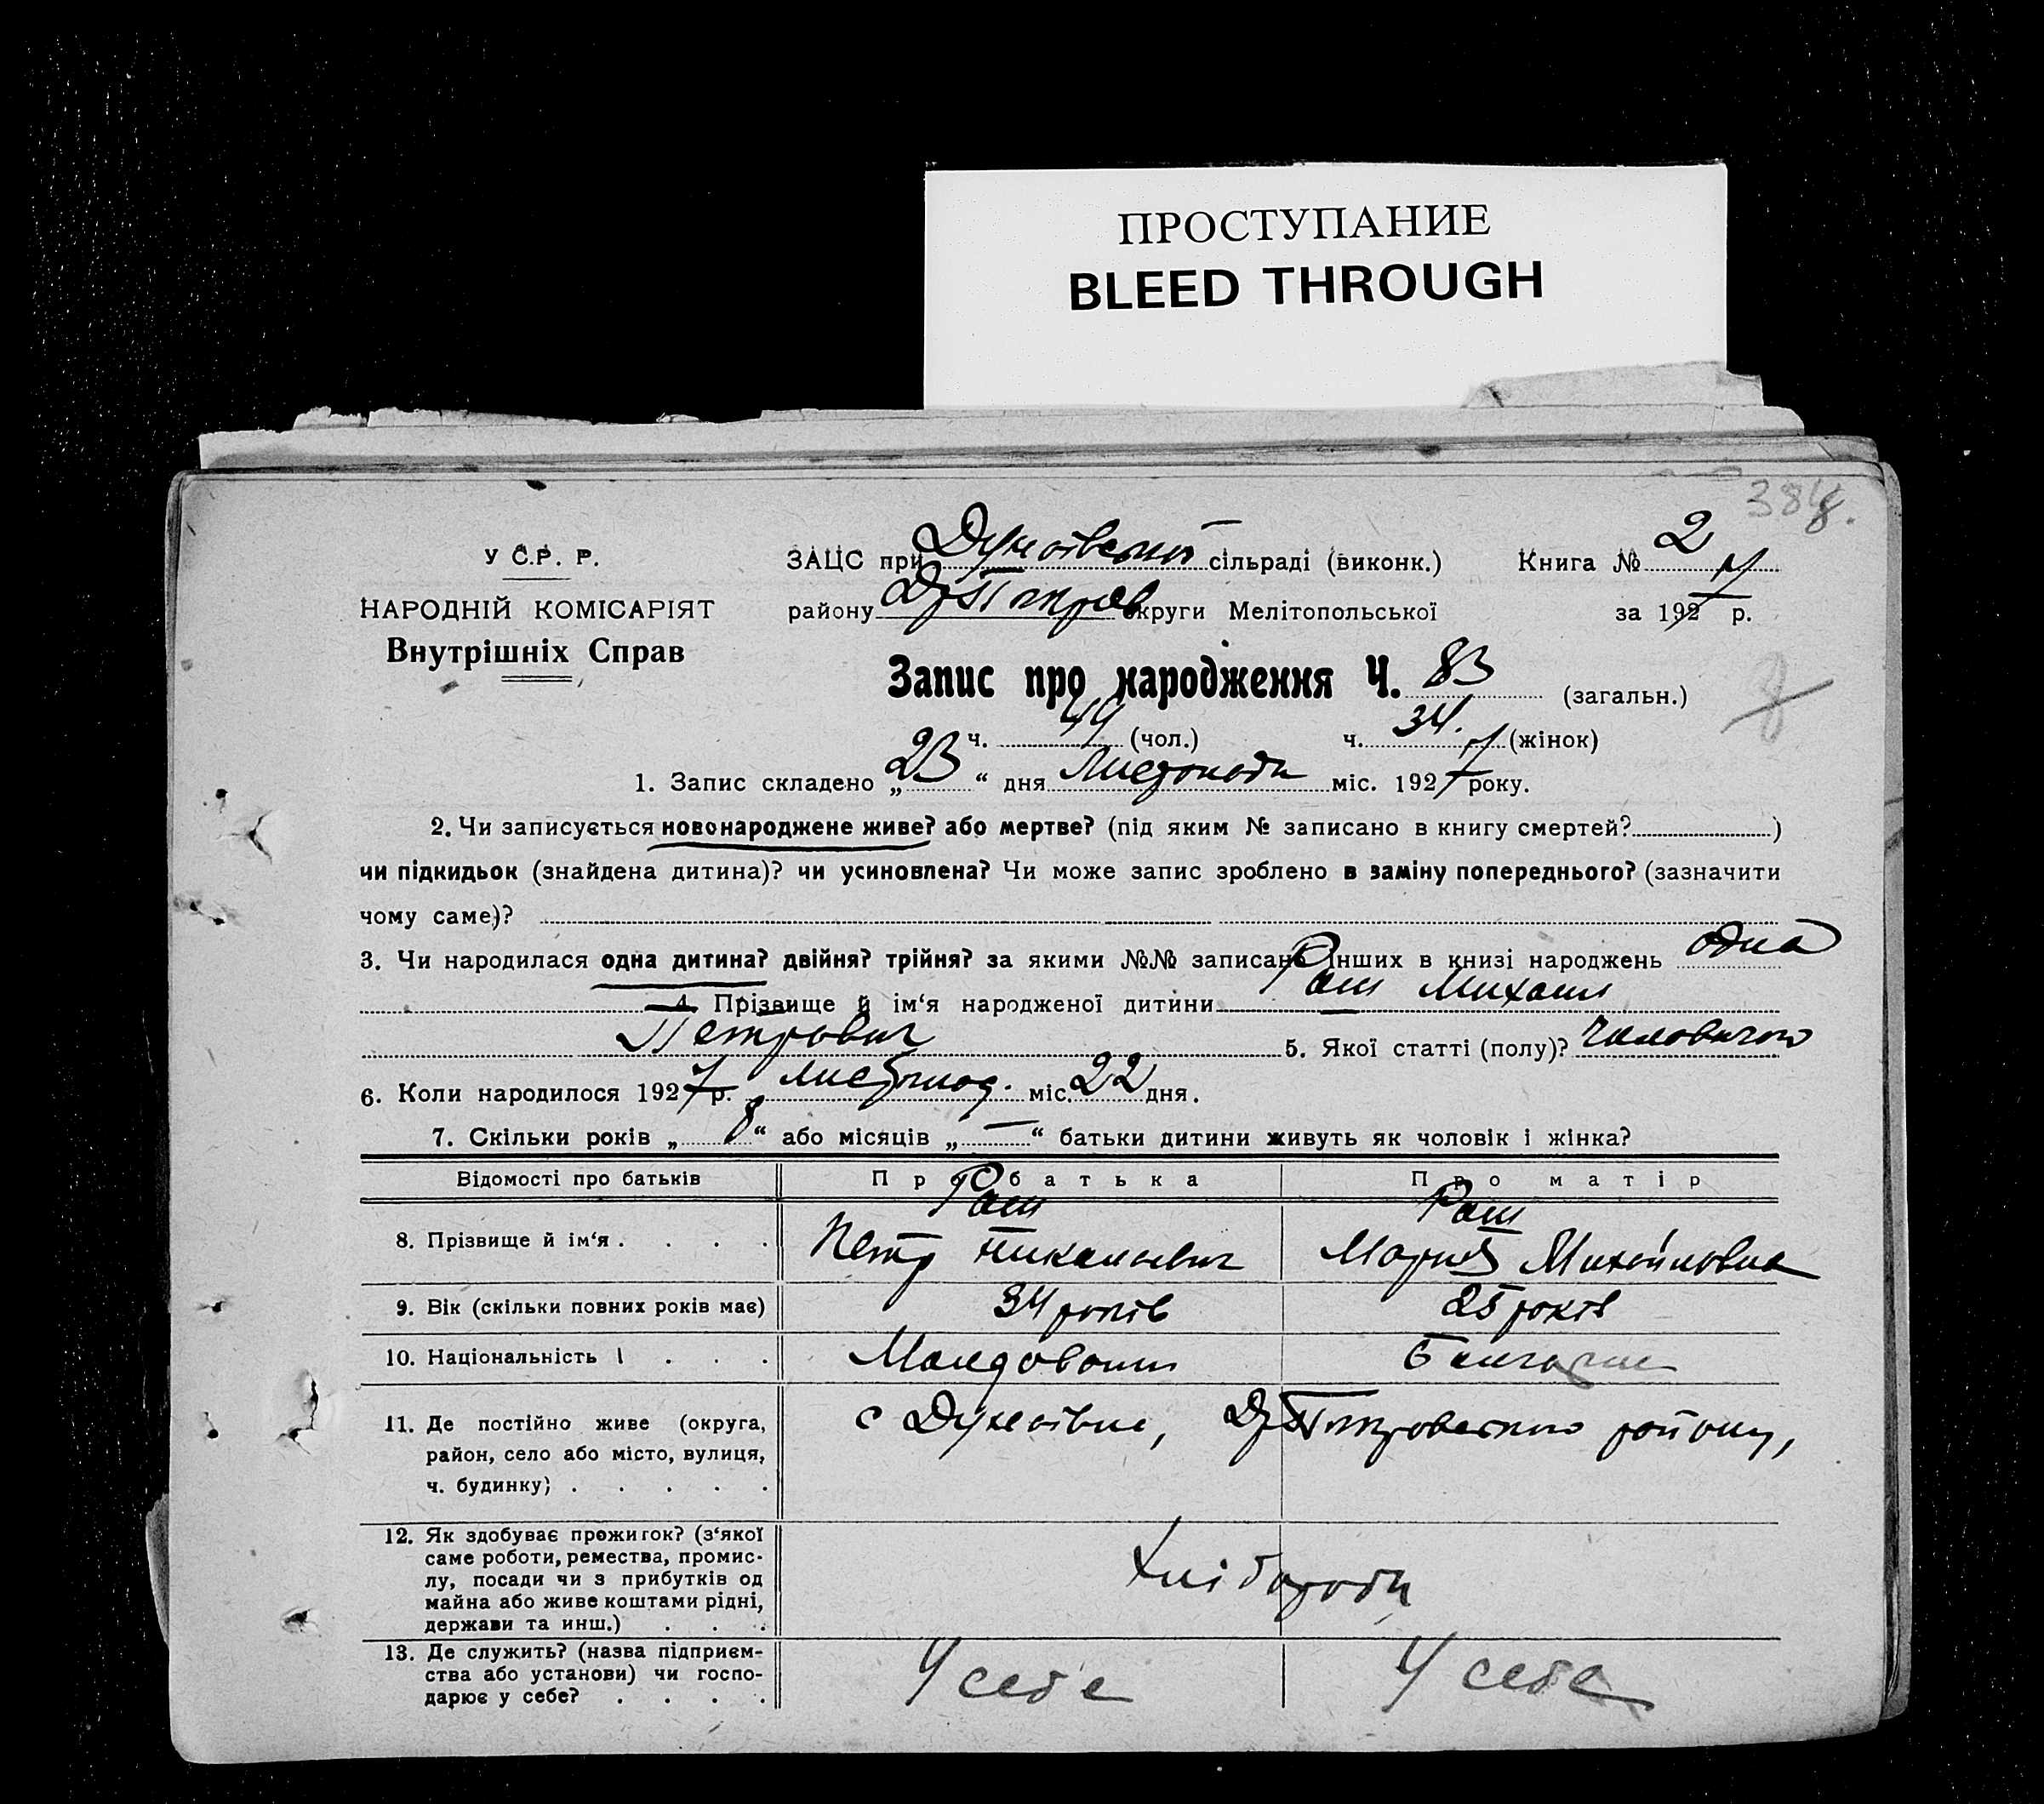 ПРОСТУПАНИЕ
BLEED THROUGH
384
8.
У С.Р. Р.
НАРОДНІЙ КОМІСАРІЯТ
Внутрішніх Справ
ЗАЦС при Дунаївській сільраді (виконк.) Книга № 2
району округи Мелітопольської за 1927 р.
Запис про народження Ч. 83 (загальн.)
ч. 49 (чол.) ч. 34. (жінок)
1. Запис складено „23“ дня Листопада міс. 1927 року.
2. Чи записується новонароджене живе? або мертве? (під яким № записано в книгу смертей? )
чи підкидьок (знайдена дитина)? чи усиновлена? Чи може запис зроблено в заміну попереднього? (зазначити
чому саме)?
3. Чи народилася одна дитина? двійня? трійня? за якими №№ записано інших в книзі народжень одна
4. Прізвище й ім‘я народженої дитини Раш Михаил
Петрович 5. Якої статті (полу)? чоловичого
6. Коли народилося 1927 р. листопад. міс. 22 дня.
7. Скільки років „8“ або місяців „—“ батьки дитини живуть як чоловік і жінка?
Відомості про батьків Про батька Про матір
8. Прізвище й ім‘я . . . . Раш Петр Николаевич Раш Мария Михайловна
9. Вік (скільки повних років має) 34 років 25 років
10. Національність . . . Молдован Болгарка
11. Де постійно живе (округа,
район, село або місто, вулиця,
ч. будинку) . . . . . с Дунаївка, району,
12. Як здобуває прожиток? (з‘якої
саме роботи, ремества, промис-
лу, посади чи з прибутків од
майна або живе коштами рідні,
держави та инш.) . . . Хлібороби
13. Де служить? (назва підприєм-
ства або установи) чи госпо-
дарює у себе? . . . . У себе У себе